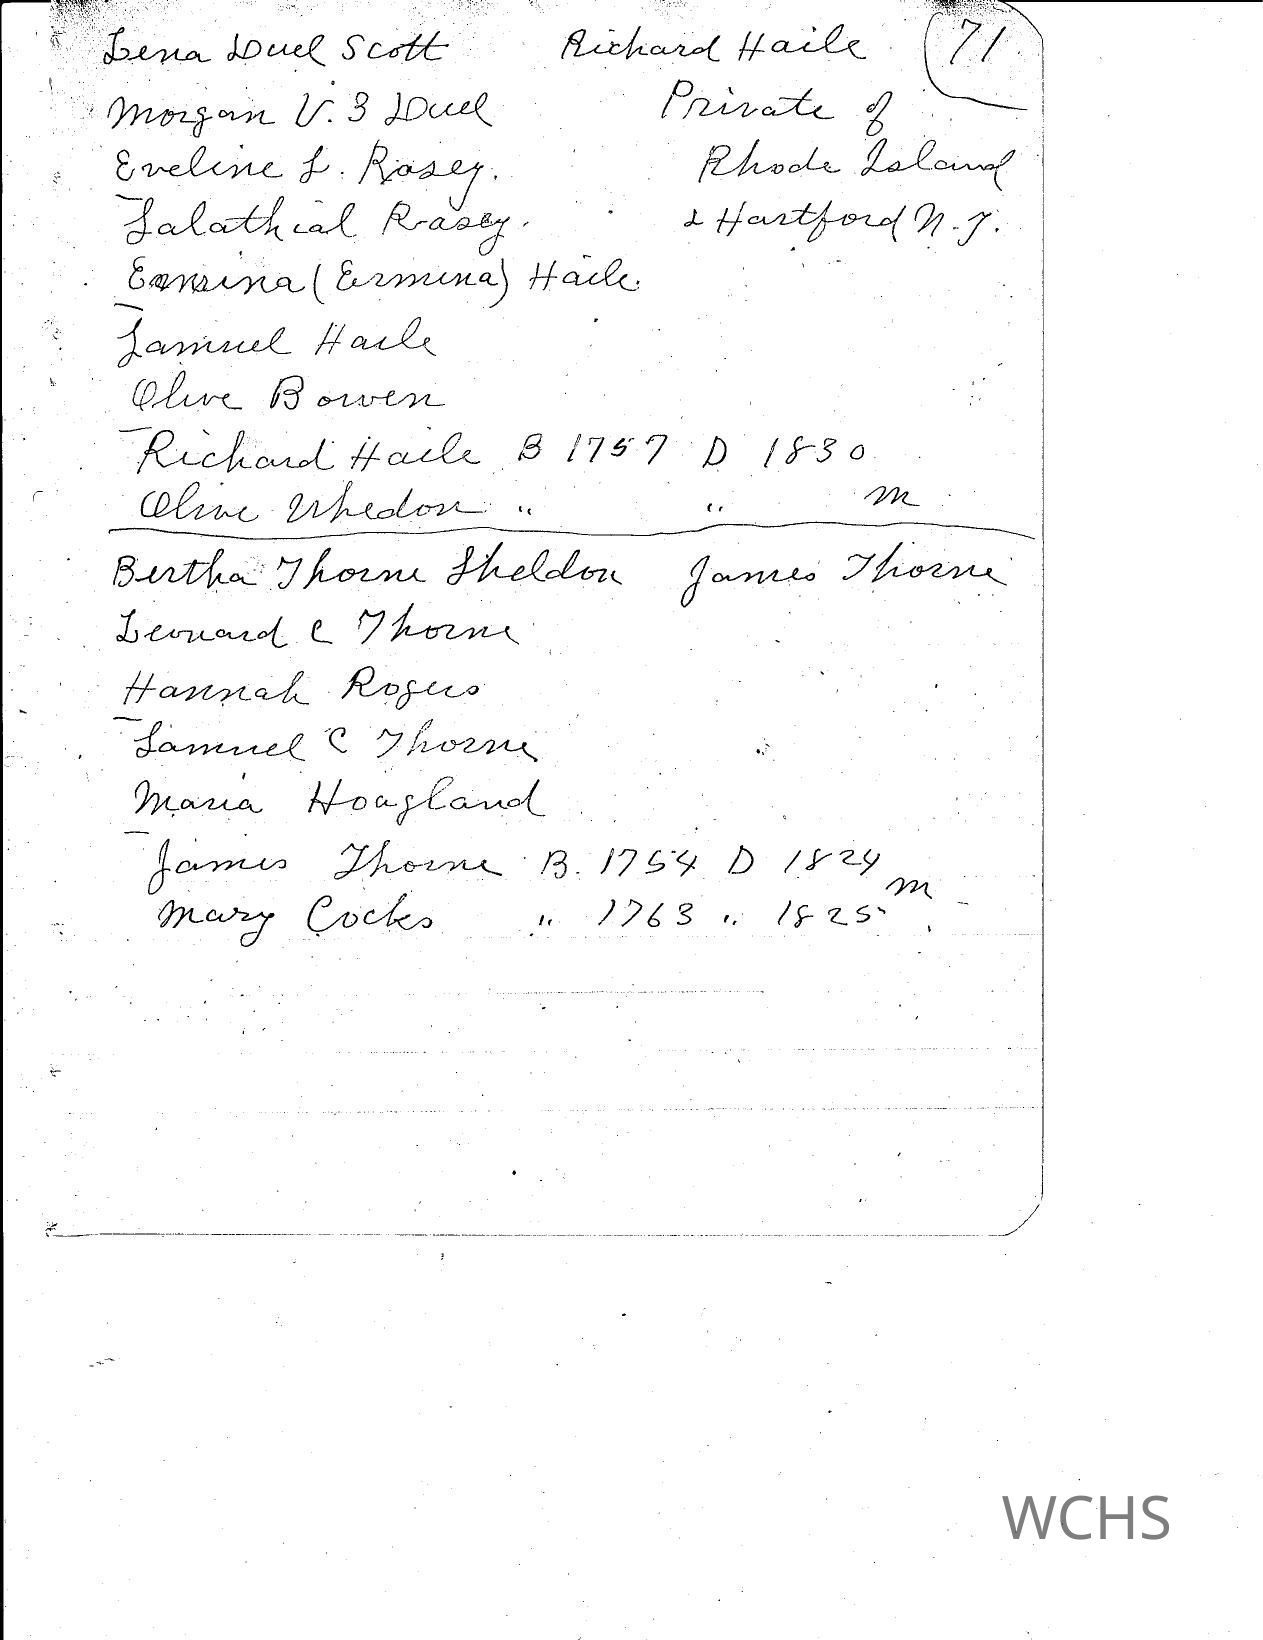 Lena Duel Scott Richard Haile 71
Morgan V. B Duel Private of
Eveline L. Rasey. Rhode Island
Salathial Rasey. & Hartford N.Y.
(Ermina) Haile.
Samuel Haile
Olive Bowen
Richard Haile B 1757 D 1830
Olive Whedon " " m
Bertha Thorne Sheldon James Thorne
Leonard C Thorne
Hannah Rogers
Samuel C Thorne
Maria Hoagland
James Thorne B. 1754 D 1824
Mary Cocks " 1763 " 1825 m
WCHS